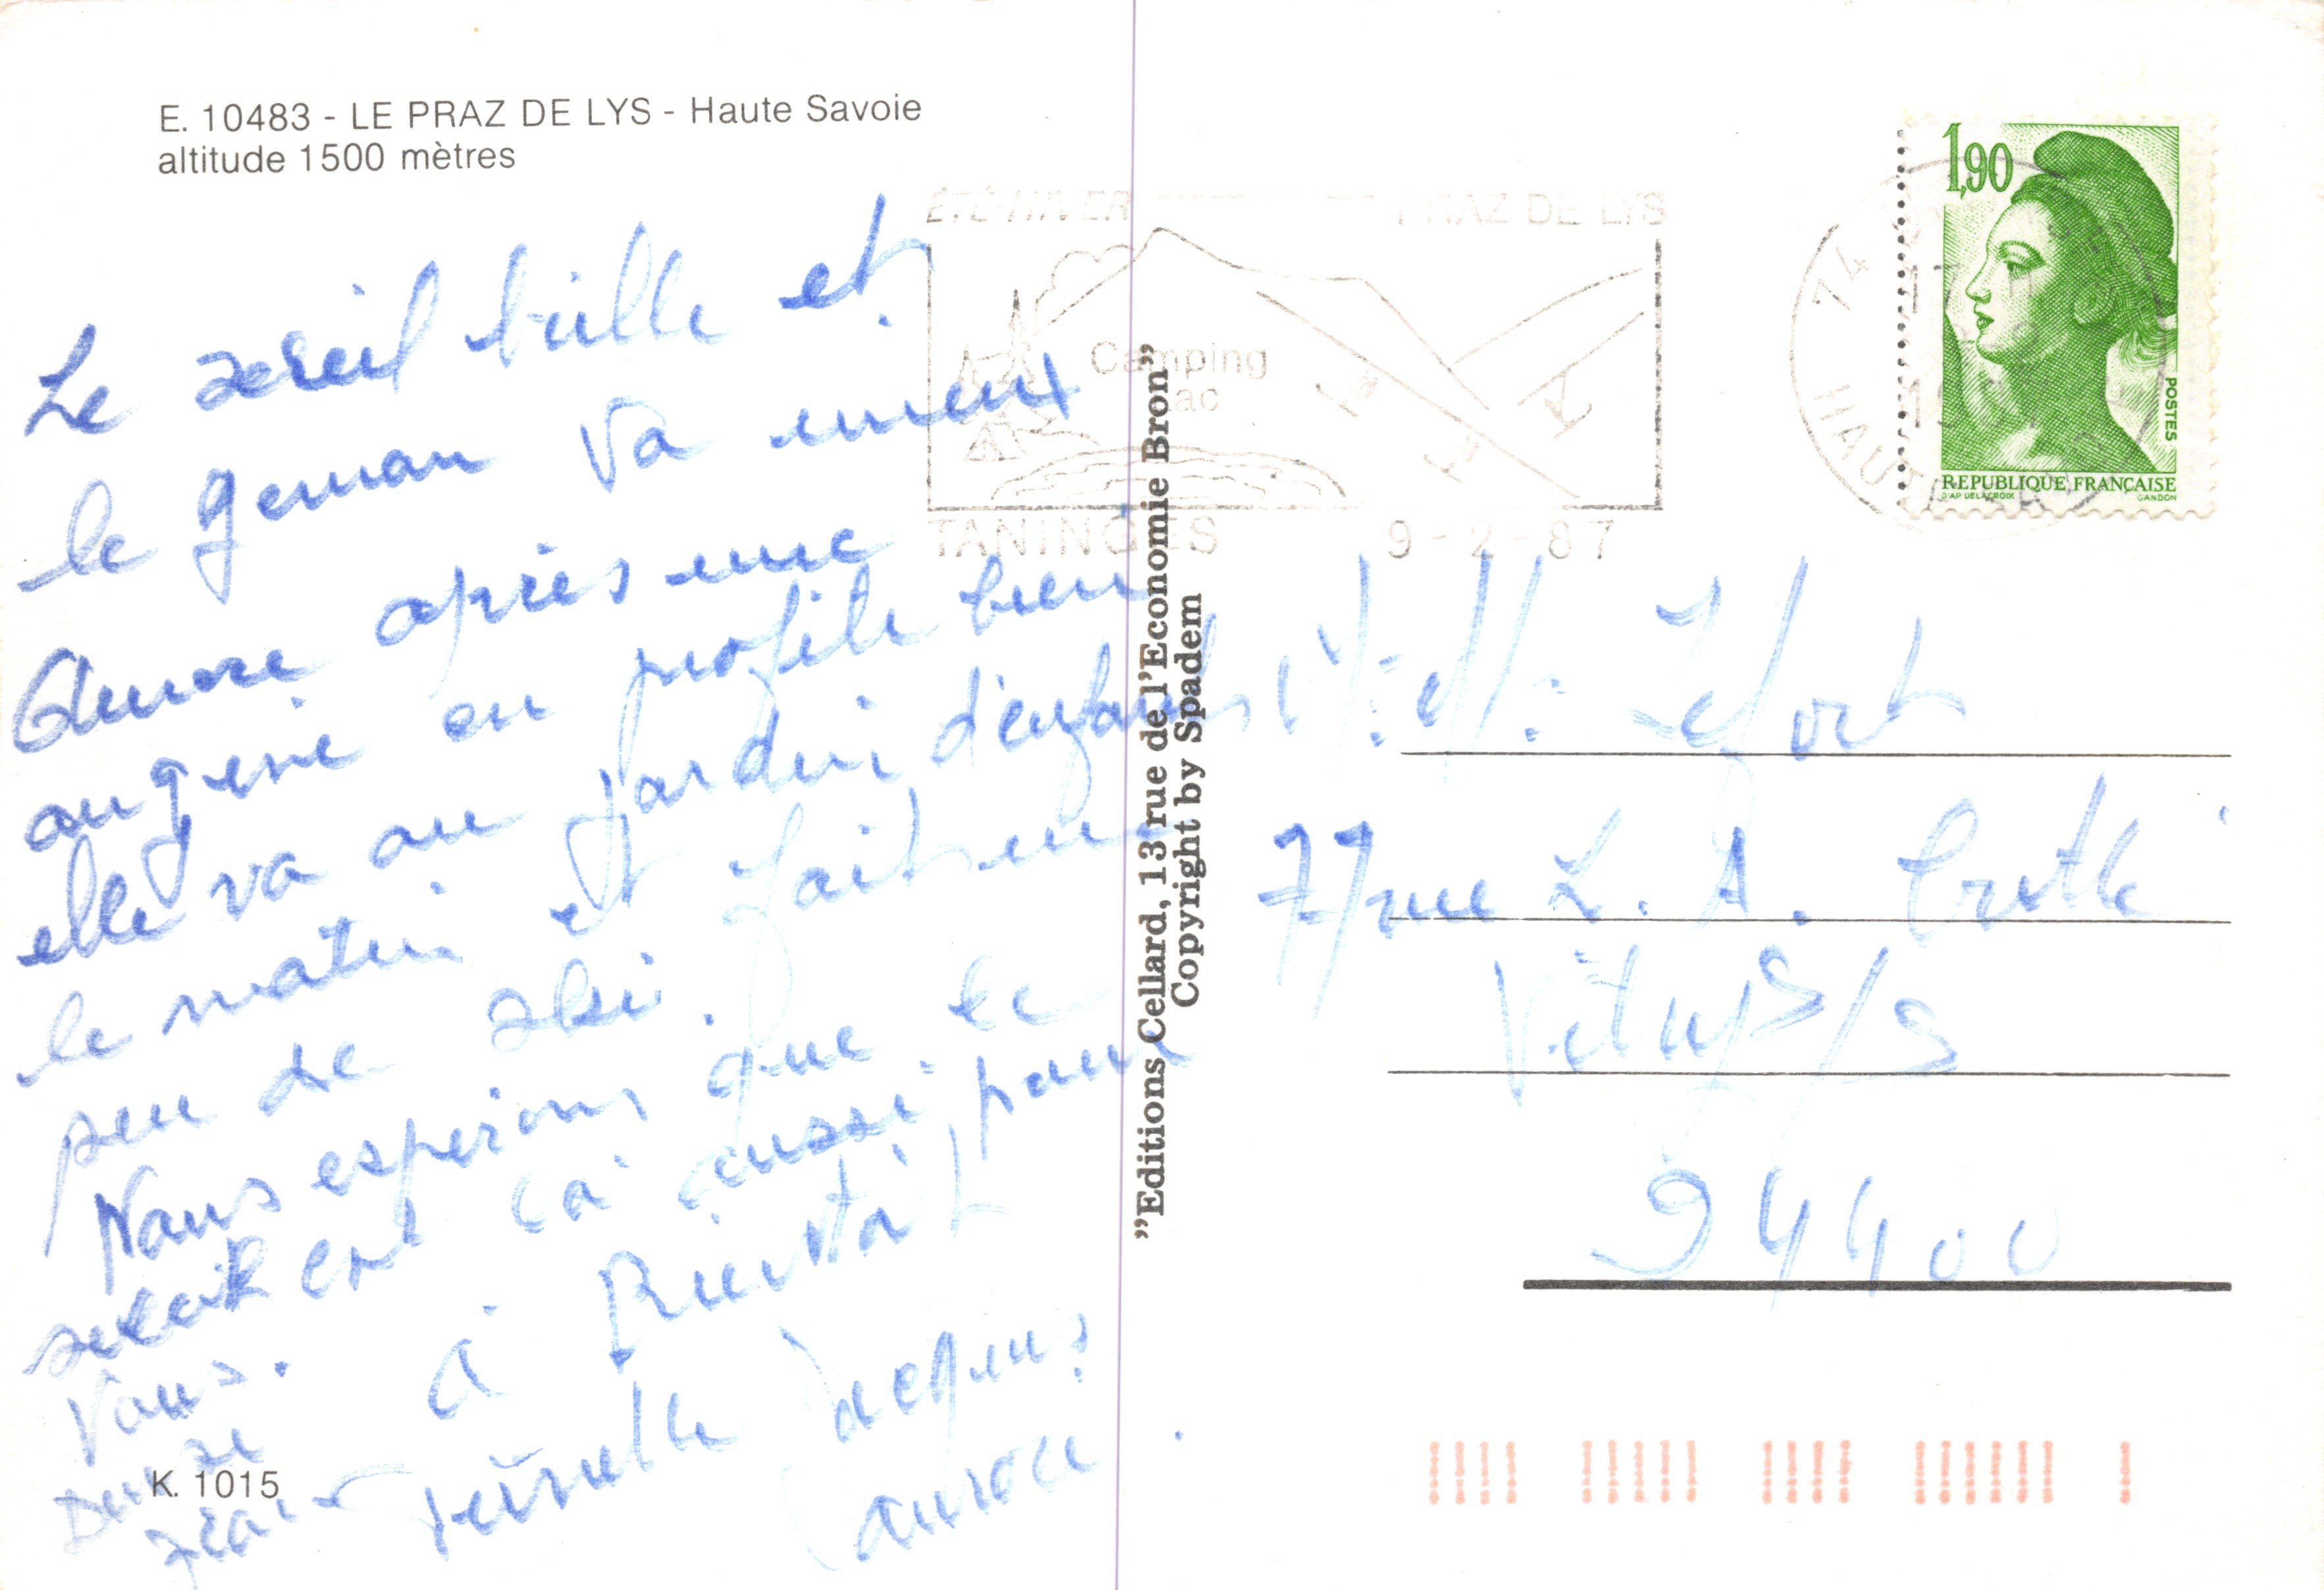 E. 10483 - LE PRAZ DE LYS - Haute Savoie
altitude 1500 mètres
Le soleil brille et
le genou va mieux
Aurore après une
angine en profite bien
elle va au jardin d'enfants
le matin et fait un
peu de ski.
Nous espérons que le
soleil est là aussi pour
Vous.
à Bientôt
Denise
Jean
Jacques
aurore
K. 1015
ÉTÉ-HIVER PRAZ DE LYS
Camping
lac
TANINGES 9-2-87
"Editions Cellard, 13 rue de l'Economie Bron"
Copyright by Spadem
1,90
POSTES
REPUBLIQUE FRANÇAISE
D'AP DELACROIX GANDON
74
HAUTE
rue
Vitry S/S
94400